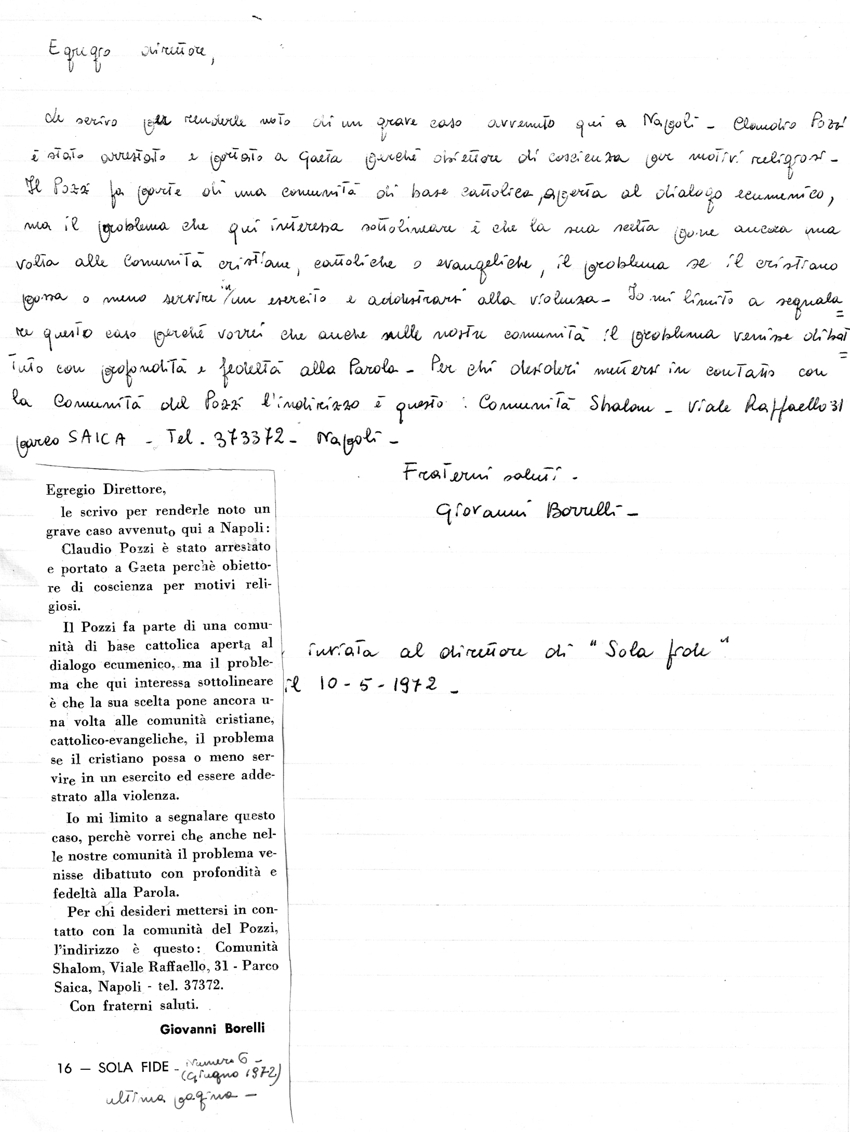 Egregio direttore,
Le scrivo per renderle noto di un grave caso avvenuto qui a Napoli - Claudio Pozzi
è stato arrestato e portato a Gaeta perché obiettore di coscienza per motivi religiosi -
Il Pozzi fa parte di una comunità di base cattolica, aperta al dialogo ecumenico,
ma il problema che qui interessa sottolineare è che la sua scelta pone ancora una
volta alle Comunità cristiane, cattoliche o evangeliche, il problema se il cristiano
possa o meno servire in un esercito e addestrarsi alla violenza - Io mi limito a segnala=
re questo caso perché vorrei che anche nelle nostre comunità il problema venisse dibat=
tuto con profondità e fedeltà alla Parola - Per chi desideri mettersi in contatto con
la Comunità del Pozzi l'indirizzo è questo : Comunità Shalom - Viale Raffaello 31
parco SAICA - Tel. 373372 - Napoli -
Fraterni saluti -
Giovanni Borrelli -
Egregio Direttore,
le scrivo per renderle noto un
grave caso avvenuto qui a Napoli:
Claudio Pozzi è stato arrestato
e portato a Gaeta perchè obietto-
re di coscienza per motivi reli-
giosi.
Il Pozzi fa parte di una comu-
nità di base cattolica aperta al
dialogo ecumenico, ma il proble-
ma che qui interessa sottolineare
è che la sua scelta pone ancora u-
na volta alle comunità cristiane,
cattolico-evangeliche, il problema
se il cristiano possa o meno ser-
vire in un esercito ed essere adde-
strato alla violenza.
Io mi limito a segnalare questo
caso, perchè vorrei che anche nel-
le nostre comunità il problema ve-
nisse dibattuto con profondità e
fedeltà alla Parola.
Per chi desideri mettersi in con-
tatto con la comunità del Pozzi,
l'indirizzo è questo: Comunità
Shalom, Viale Raffaello, 31 - Parco
Saica, Napoli - tel. 37372.
Con fraterni saluti.
Giovanni Borelli
16 — SOLA FIDE - numero 6 -
(Giugno 1972)
ultima pagina -
inviata al direttore di "Sola fide"
il 10-5-1972 -